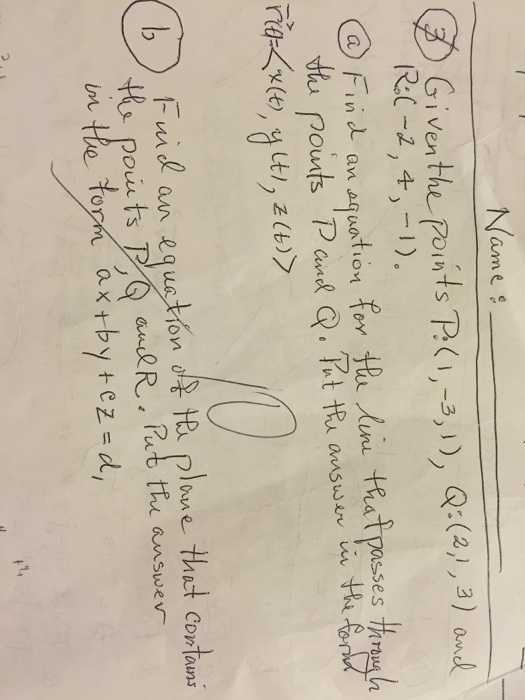 Name:
7 Given the points P:(1,-3,1), Q:(2,1,3) and
R:(-2,4,-1).
a Find an equation for the line that passes through
the points P and Q. Put the answer in the form
r(t)=<x(t), y(t), z(t)>
10
b Find an equation of the plane that contains
the points P, Q and R. Put the answer
in the form ax+by+cz=d,